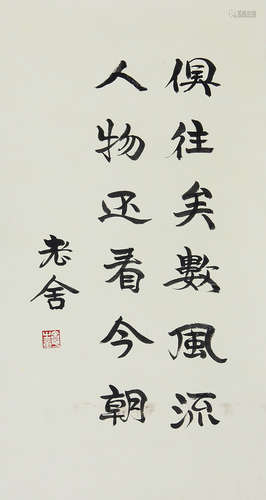 俱往矣數風流
人物还看今朝
老舍